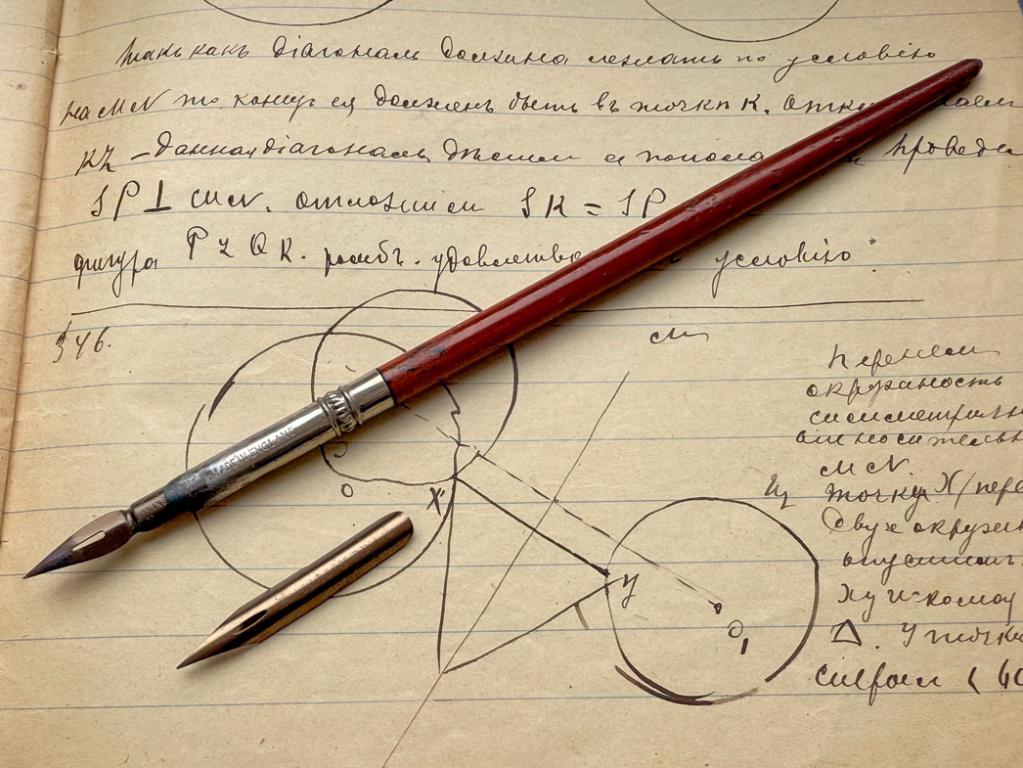 такъ какъ діагональ должна лежать по условію
на MN то конецъ ея долженъ быть въ точкѣ K.
KZ – данная діагональ, дѣлимъ ее попола проведе
SP ⊥ MN. отложимъ SK = SP
фигура PZQK. ромбъ. удовлетво условію.
346.
MN
X
O
Y
O₁
MADE IN ENGLAND
Перенесем
окружность
симметричн
относительн
MN
точку X/пере
Двухъ окружн
опустимъ
XY и
Δ. У точки